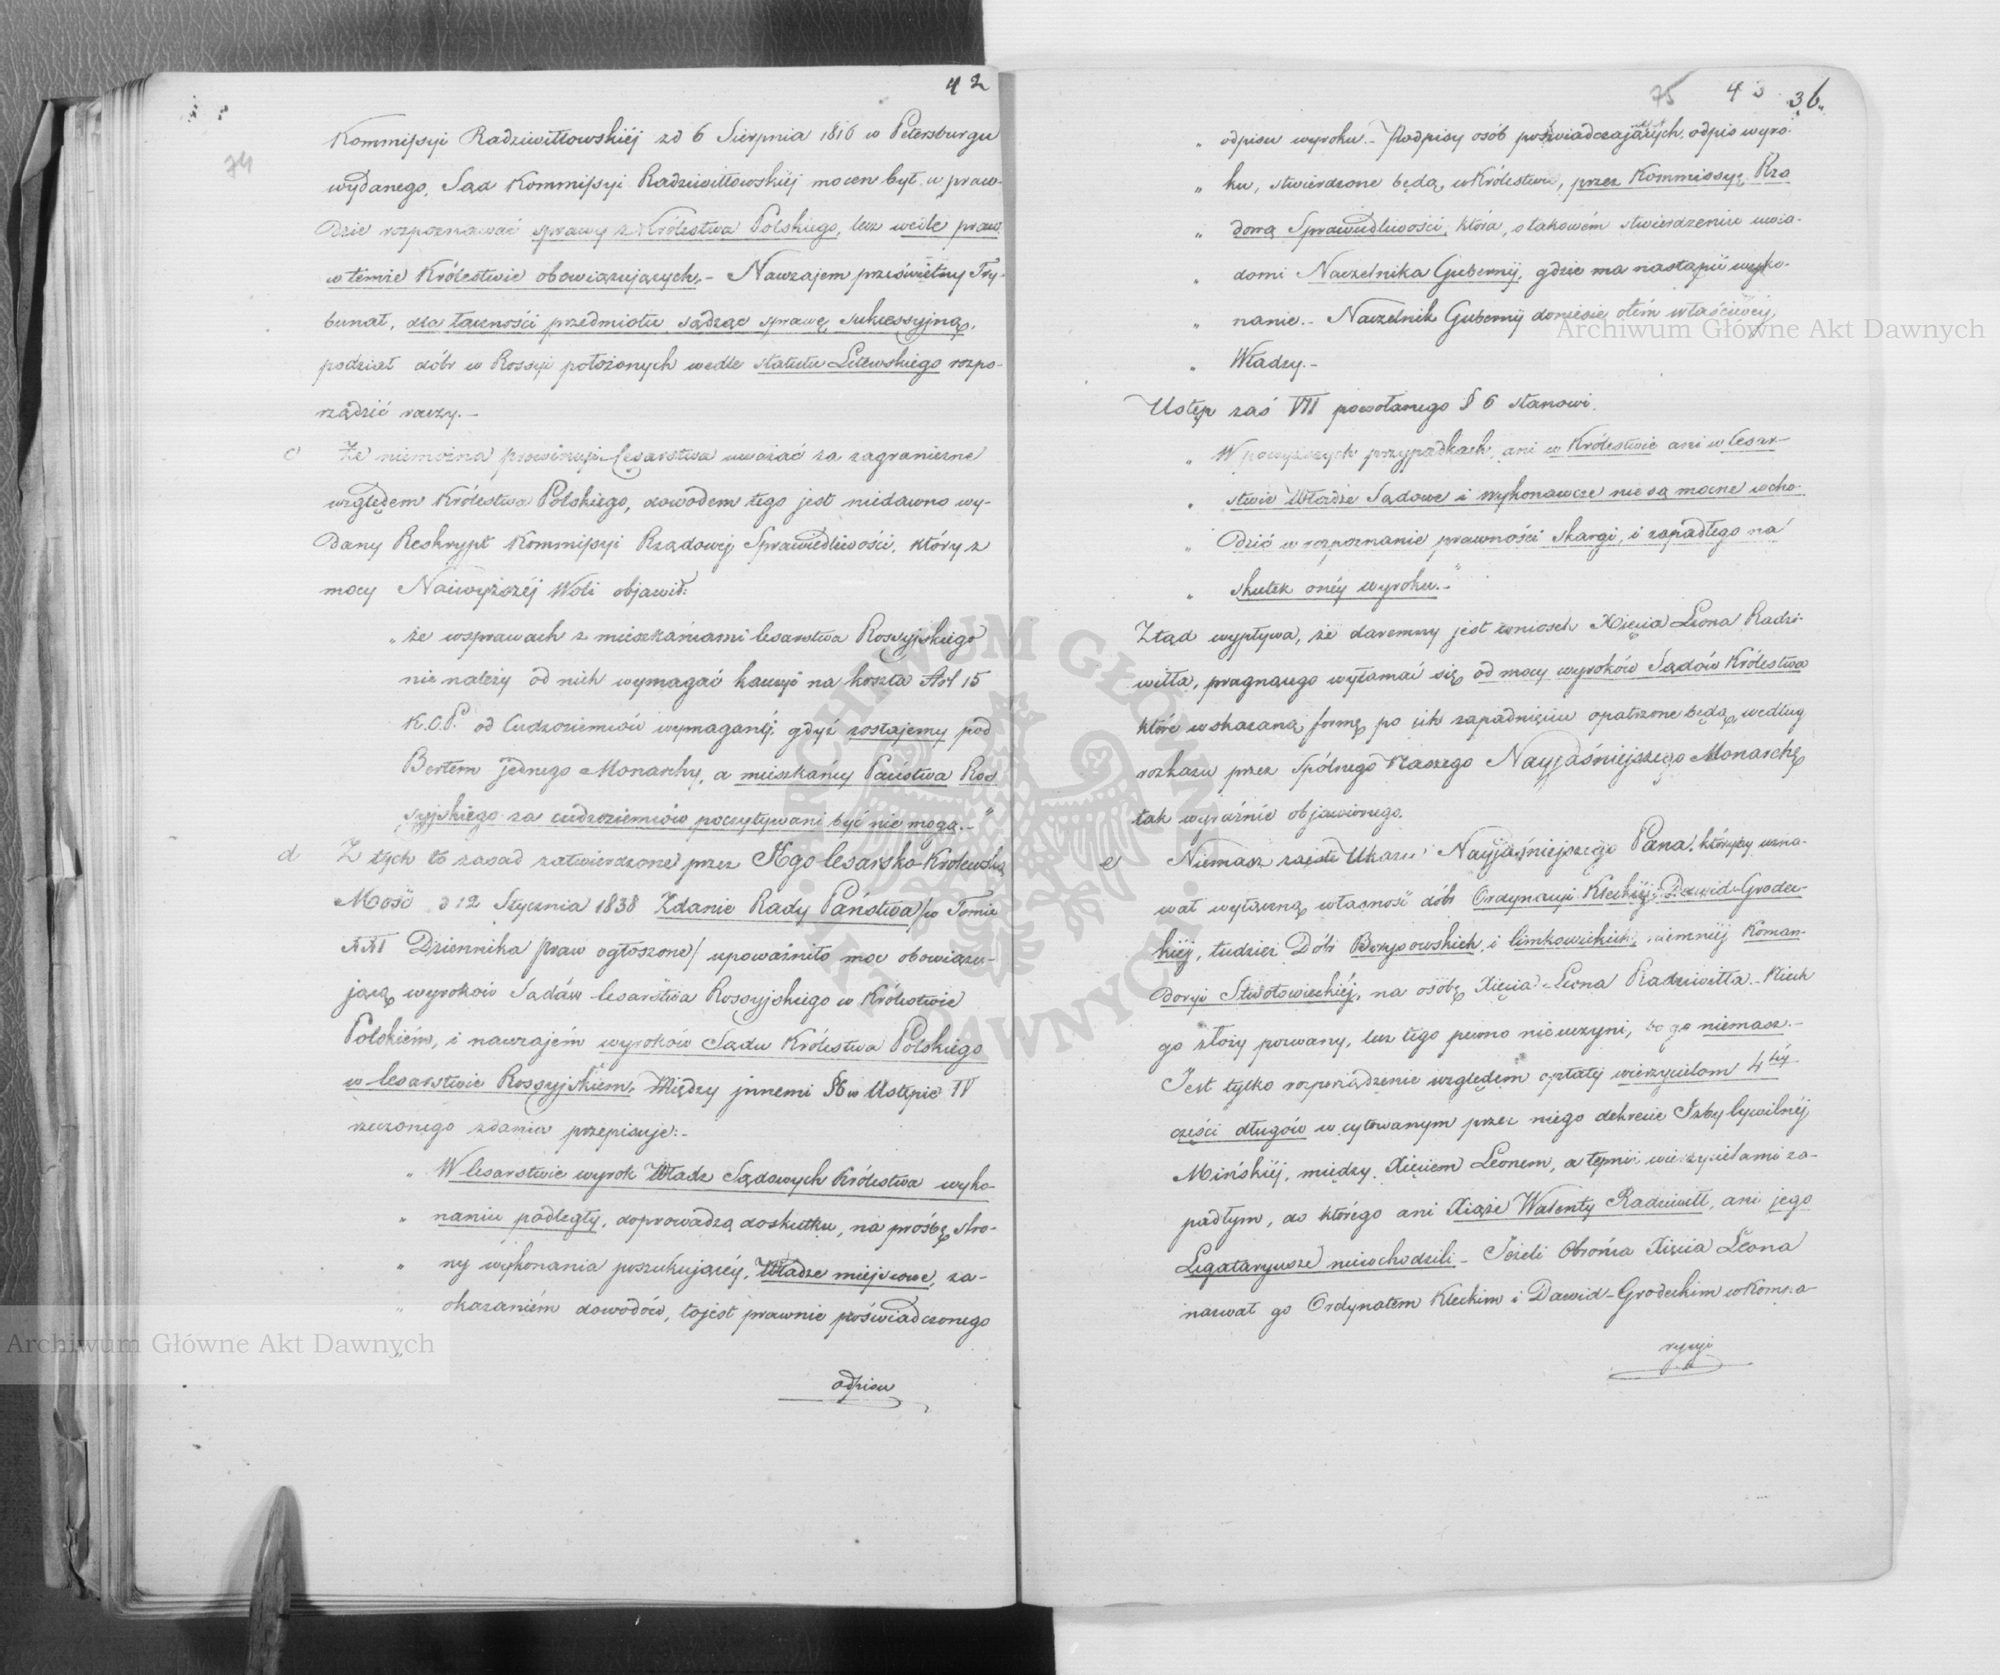 42
74
Kommissyi Radziwiłłowskiéj zd 6 Sierpnia 1816 w Petersburgu
wydanego, Sąd Kommissyi Radziwiłłowskiéj mocen był w praw-
dzie rozpoznawać sprawy z Królestwa Polskiego, lecz wedle praw
w temże Królestwie obowiązujących,- Nawzajem prześwietny Try-
bunał, dla łączności przedmiotu sądząc sprawę sukcessyjną,
podział dóbr w Rossyi położonych wedle statutu Litewskiego rozpo-
rządzić raczy.-
c) Że niemożna prowincyi Cesarstwa uważać za zagraniczne
względem Królestwa Polskiego, dowodem tego jest niedawno wy-
dany Reskrypt Kommissyi Rządowej Sprawiedliwości, który z
mocy Naiwyższéj Woli objawił:
„ że w sprawach z mieszkańcami Cesarstwa Rossyjskiego
nie należy od nich wymagać kaucyi na koszta Art 15
K.C.P. od Cudzoziemców wymaganéj, gdyż zostajemy pod
Berłem jednego Monarchy, a mieszkańcy Państwa Ros
syjskiego za cudzoziemców poczytywani być nie mogą.-"
d Z tych to zasad zatwierdzone przez Jego Cesarsko-Królewską
Mość d 12 Stycznia 1838 Zdanie Rady Państwa /w Tomie
XXI Dziennika praw ogłoszone/ upoważniło moc obowiązu-
jącą wyroków Sądów Cesarstwa Rossyjskiego w Królestwie
Polskiém, i nawzajem wyroków Sądu Królestwa Polskiego
w Cesarstwie Rossyjskiem. Między jnnemi §6 w Ustępie IV
rzeczonego zdania przepisuje:-
„ W Cesarstwie wyrok Władz Sądowych Królestwa wyko-
„ naniu podległy, doprowadzą do skutku, na prośbę stro-
„ ny wykonania poszukującéj, Władze miejscowe, za-
„ okazaniém dowodów, to jest prawnie poświadczonego
odpisu
75 43 36.
„ odpisu wyroku.- Podpisy osób poświadczających odpis wyro-
„ ku, stwierdzone będą w Królestwie, przez Kommissyę Rzą
„ dową Sprawiedliwości, która, o takowém stwierdzeniu uwia-
„ domi Naczelnika Gubernij, gdzie ma nastąpić wyko-
„ nanie.- Naczelnik Gubernij doniesie o tém właściwéj
„ Władzy.-
Ustęp zaś VII powołanego § 6 stanowi.
„ W powyższych przypadkach, ani w Królestwie ani w Cesar-
„ stwie Władze Sądowe i wykonawcze nie są mocne wcho-
„ dzić w rozpoznanie prawności skargi, i zapadłego na
„ skutek onéj wyroku.-"
Ztąd wypływa, że daremny jest wniosek Xięcia Leona Radzi-
wiłła, pragnącego wyłamać się od mocy wyroków Sądów Królestwa
które wskazaną formę po ich zapadnięciu opatrzone będą, według
rozkazu przez Spólnego Naszego Nayjaśniejszego Monarchę
tak wyraźnie objawionego.
e) Niemasz zaiste Ukazu Nayjaśniejszego Pana, któryby uzna-
wał wyłączną własność dóbr Ordynacyi Kleckiéj, Dawid-Grodec-
kiéj, tudzież Dóbr Bozysowskich, i Cimkowickich, niemniéj Koman-
doryi Stwołowickiéj, na osobę Xięcia Leona Radziwiłła.- Niech
go złoży pozwany, lecz tego pewno nie uczyni, bo go niemasz.-
Jest tylko rozporządzenie względem opłaty wierzycielom 4téj
części długów w cytowanym przez niego dekrecie Izby Cywilnéj
Mińskiéj, między Xięciem Leonem, a temiż wierzycielami za-
padłym, do którego ani Xiąże Walenty Radziwiłł, ani jego
Legataryusze niewchodzili.- Jeżeli Obrońca Xięcia Leona
nazwał go Ordynatem Kleckim i Dawid-Grodeckim w Kompa-
rycyi
Archiwum Główne Akt Dawnych
Archiwum Główne Akt Dawnych
ARCHIWUM GŁÓWNE AKT DAWNYCH